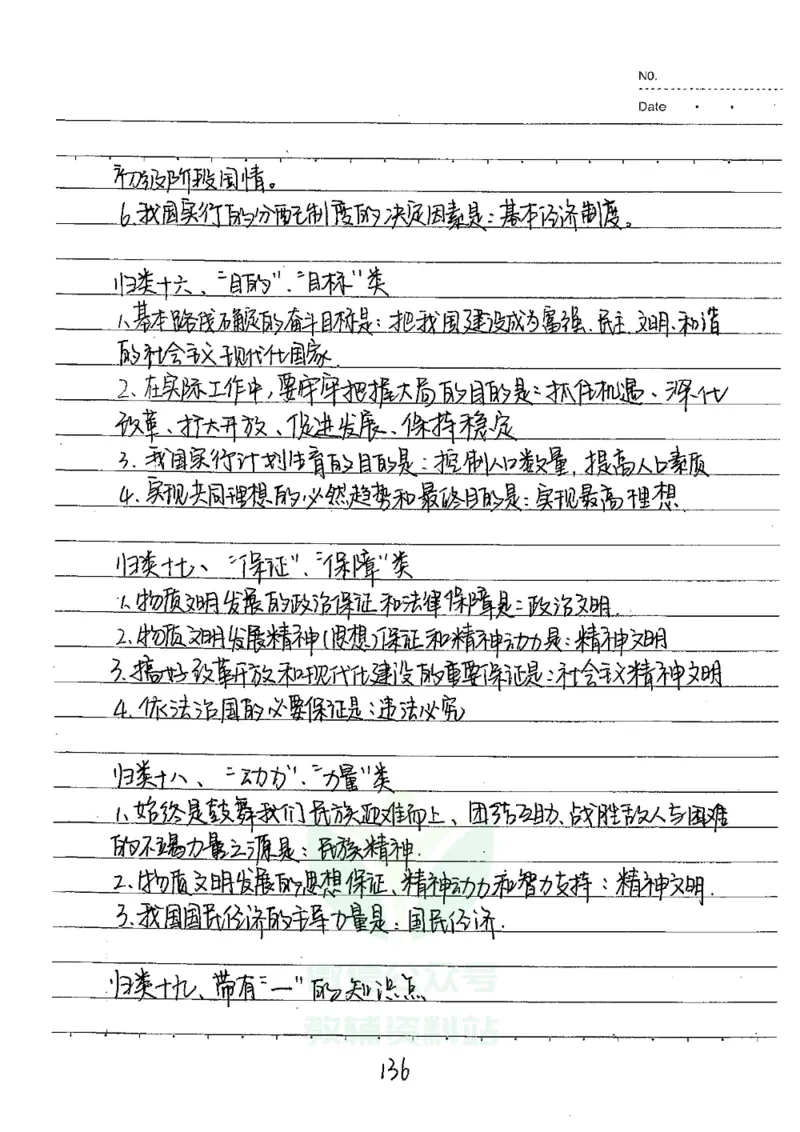 NO.
Date
初级阶段国情。
6.我国实行的分配制度的决定因素是:基本经济制度。
归类十六、“目的”、“目标”类
1、基本路线确定的奋斗目标是:把我国建设成为富强、民主、文明、和谐
的社会主义现代化国家.
2、在实际工作中,要牢牢把握大局的目的是:抓住机遇、深化
改革、扩大开放、促进发展、保持稳定
3、我国实行计划生育的目的是:控制人口数量,提高人口素质
4、实现共同理想的必然趋势和最终目的是:实现最高理想.
归类十七、“保证”、“保障”类
1、物质文明发展的政治保证和法律保障是:政治文明.
2、物质文明发展精神(思想)保证和精神动力是:精神文明
3、搞好改革开放和现代化建设的重要保证是:社会主义精神文明
4、依法治国的必要保证是:违法必究
归类十八、“动力”、“力量”类
1、始终是鼓舞我们民族迎难而上、团结互助、战胜敌人与困难
的不竭力量之源是:民族精神.
2、物质文明发展的思想保证、精神动力和智力支持:精神文明.
3、我国国民经济的主导力量是:国民经济.
归类十九、带有“一”的知识点
微信公众号
教辅资料站
136